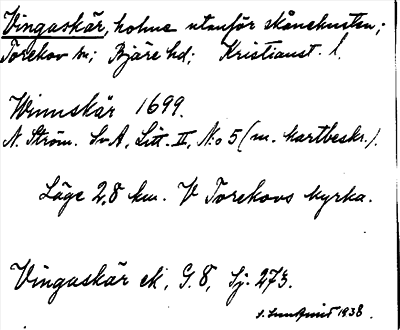 Vingaskär, holme utanför skånekusten;
Torekov sn; Bjäre hd; Kristianst. l.
Winnskär 1699.
N. Ström. SvA, Litt. II, No 5 (m. kartbeskr.).
Läge 2,8 km. V Torekovs kyrka.
Vingaskär ek, G. 8, Sj. 273.
1938.